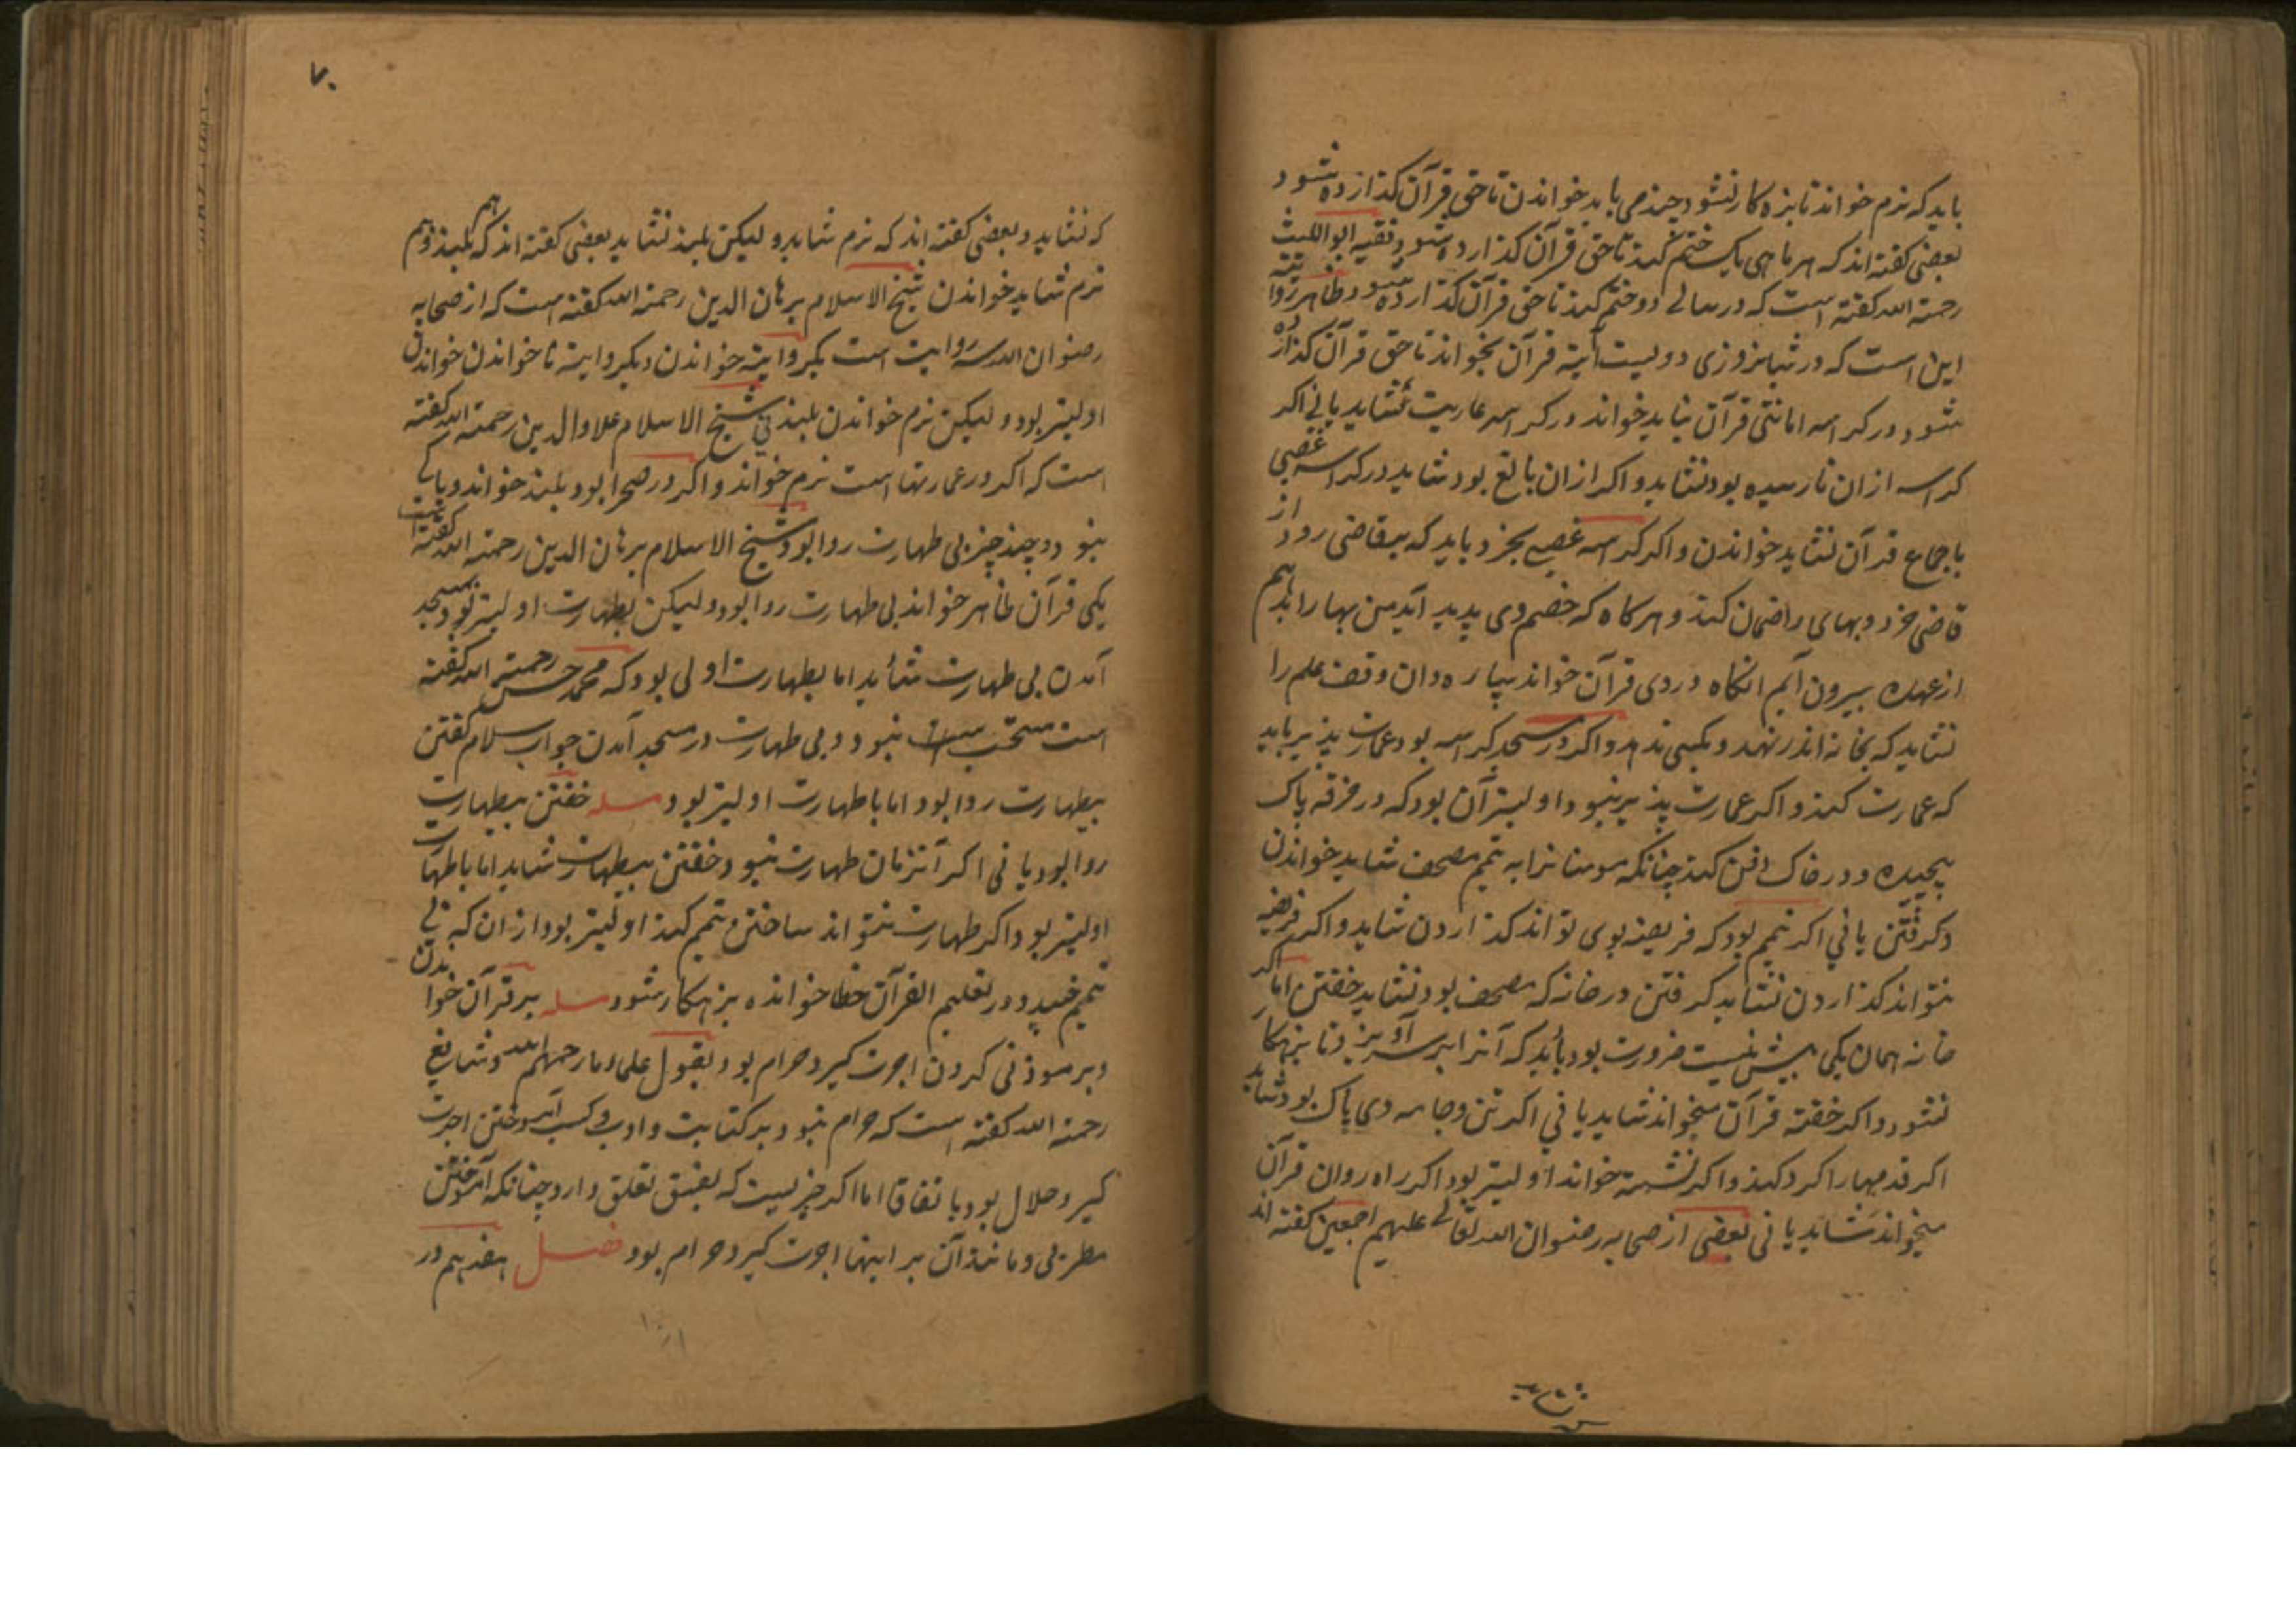 باید که نرم خواند تا بزه کار نشود چند می باید خواندن تا حق قرآن کذارده شود
بعضی کفته اند که هر ماهی یک ختم کند تا حق قرآن کذارده شود و فقیه ابواللیث
رحمة الله کفته است که در سالے دو ختم کند تا حق قرآن کذارده شود و ظاهر روایته
این است که در شبانروزی دویست آیته قرآن بخواند تا حق قرآن کذارده
شود و در کراسه امانتی قرآن شاید خواند در کراسه عاریت نشاید یا نے اکر
کراسه ازان نارسیده بود نشاید و اکر ازان بالغ بود شاید در کراسه غصبی
باجماع قرآن نشاید خواندن و اکر کراسه غصبے بخرد باید که بقاضی رود از
قاضی خرد و بهای را ضمان کند و هرکاه که خصم وی پدید آید من بها را بدهم
از عهده بیرون آیم انکاه در وی قرآن خواند سپاره دان وقف علم را
نشاید که بخانه اندر نهد و بکسی ندهد و اکر در مسجد کراسه بود عمارت پذیر باید
که عمارت کند و اکر عمارت پذیر نبود اولیتر آن بود که در خرقه پاک
پیچیده و در خاک دفن کند چنانکه مومنانرا به تیمم مصحف شاید خواندن
و کرفتن یا نے اکر تیمم بود که فریضه بوی تواند کذاردن شاید و اکر فریضه
نتواند کذاردن نشاید کرفتن در خانه که مصحف بود نشاید خفتن اما اکر
خانه همان یکی بیش نیست ضرورت بود باید که آنرا برسر آویزد تا بزهکار
نشود و اکر خفته قرآن میخواند شاید یا نے اکر تن و جامه وی پاک بود شاید
اکر قدمها را کرد کند و اکر نشسته خواند اولیتر بود اکر راه روان قرآن
میخواند شاید یا نی بعضی از صحابه رضوان الله تعالے علیهم اجمعین کفته اند
۷۰
که نشاید و بعضی کفته اند که نرم شاید و لیکن بلند نشاید بعضی کفته اند که هم بلند و هم
نرم شاید خواندن شیخ الاسلام برهان الدین رحمة الله کفته است که از صحابه
رضوان الله سه روایت است یکروایته خواندن و یکروایته ناخواندن خواندن
اولیتر بود و لیکن نرم خواندن بلند نی شیخ الاسلام علاوالدین رحمة الله کفته
است که اکر در عمارتها است نرم خواند و اکر در صحرا بود بلند خواند و باکے
نبود و چند چیز بی طهارت روا بود و شیخ الاسلام برهان الدین رحمة الله کفته است
یکی قرآن ظاهر خواند بی طهارت روا بود و لیکن بطهارت اولیتر بود و بمسجد
آمدن بی طهارت شاید اما بطهارت اولی بود که محمد حسن رحمة الله کفته
است مستحب نبود و بی طهارت در مسجد آمدن جواب سلام کفتن
بیطهارت روا بود اما با طهارت اولیتر بود مسله خفتن بیطهارت
روا بود یا نی اکر آنزمان طهارت نبود و خفتن بیطهارت شاید اما با طهارت
اولیتر بود اکر طهارت نتواند ساختن تیمم کند اولیتر بود از ان که بے
تیمم خسپد و در تعلیم القرآن خطا خوانده بزهکار شود مسله بر قرآن خواندن
و بر موذنی کردن اجرت کیرد حرام بود بقول علماء ما رحمهم الله و شافع
رحمة الله کفته است که حرام نبود و بر کتابت و ادب و کسب آموختن اجرت
کیرد حلال بود باتفاق اما اکر چیزیست که بفسق تعلق دارد چنانکه آموختن
مطربی و مانند آن بر اینها اجرت کیرد حرام بود فصل هفدهم در